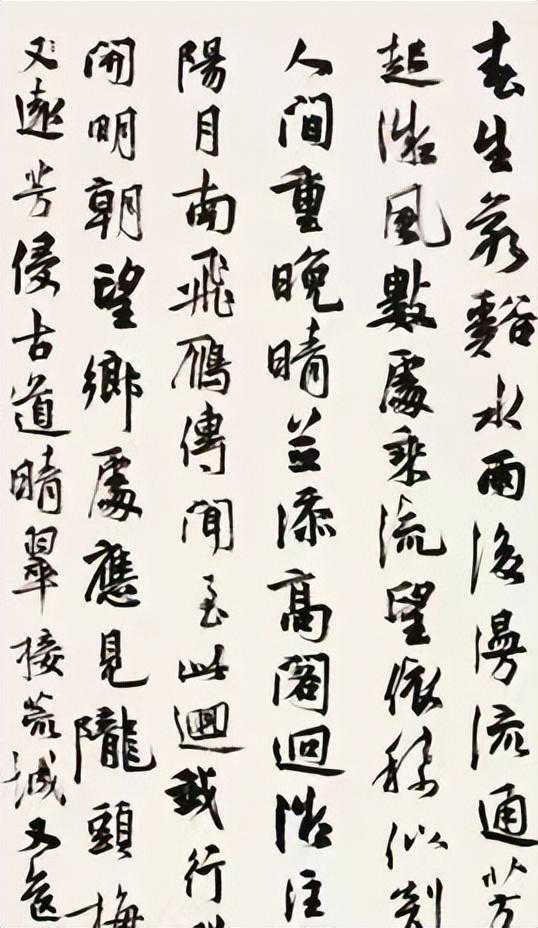 春生若谿水雨後漫流通芳
起微風數處乘流望依稀似剡
人間重晚晴並添高閣迥微注
陽月南飛鴈傳聞至此迴我行
開明朝望鄉處應見隴頭梅
又遠芳侵古道晴翠接荒城又送